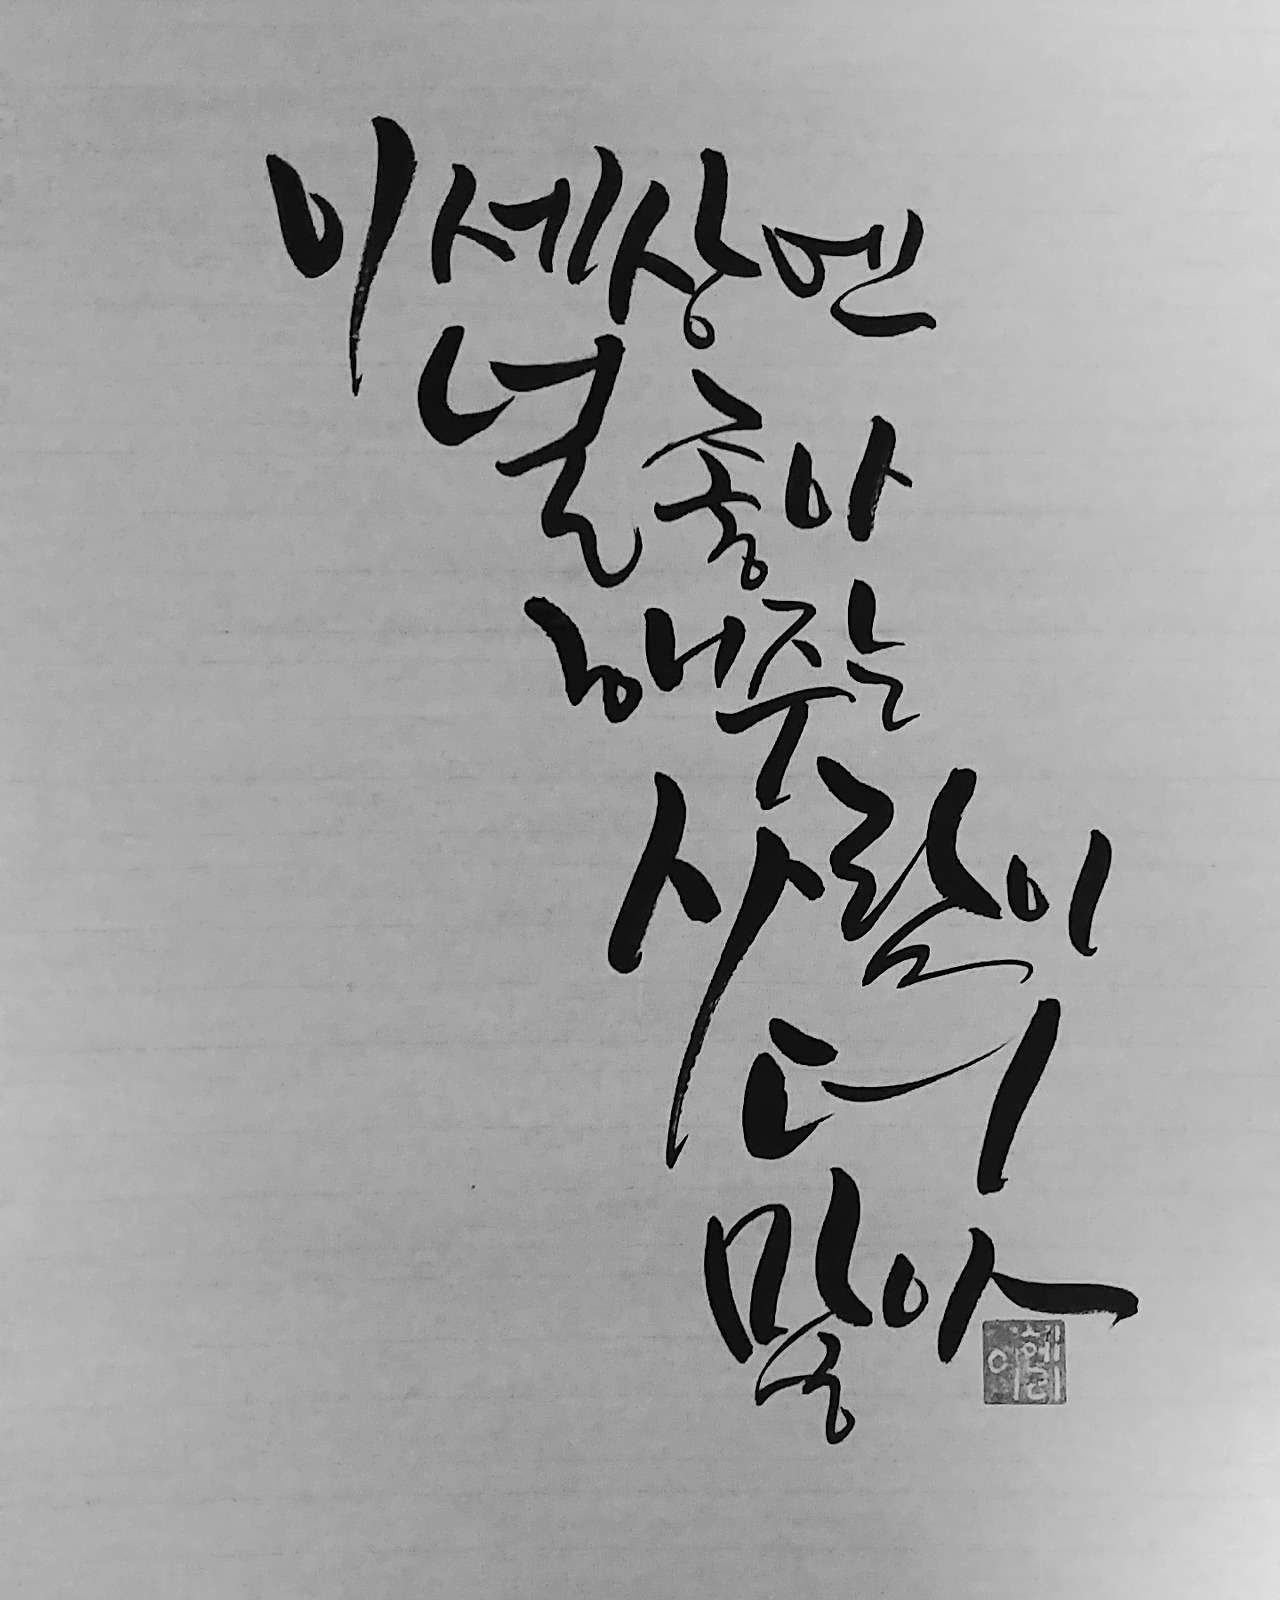 이 세상엔
널 좋아
해 주는
사람이
더
많아